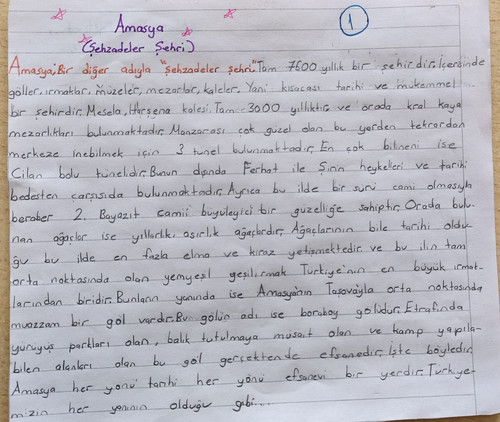 1
Amasya
(Şehzadeler Şehri)
Amasya; Bir diğer adıyla "şehzadeler şehri" Tam 7500 yıllık bir şehirdir. İçerisinde
göller, ırmaklar, müzeler, mezarlar, kaleler. Yani kısacası tarihi ve mükemmel
bir şehirdir. Mesela, Harşena kalesi. Tam 3000 yıllıktır ve orada kral kaya
mezarlıkları bulunmaktadır. Manzarası çok güzel olan bu yerden tekrardan
merkeze inebilmek için 3 tünel bulunmaktadır. En çok bilineni ise
Cilan bolu tünelidir. Bunun dışında Ferhat ile Şirin heykelleri ve tarihi
bedesten çarşısıda bulunmaktadır. Ayrıca bu ilde bir sürü cami olmasıyla
beraber 2. Bayazıt camii büyüleyici bir güzelliğe sahiptir. Orada bulu-
nan ağaçlar ise yıllarlık, asırlık ağaçlardır. Ağaçlarının bile tarihi oldu-
ğu bu ilde en fazla elma ve kiraz yetişmektedir ve bu ilin tam
orta noktasında olan yemyeşil yeşilırmak Türkiye'nin en büyük ırmak-
larından biridir. Bunların yanında ise Amasya'nın Taşova'yla orta noktasında
muazzam bir göl vardır. Bu gölün adı ise boraboy gölüdür. Etrafında
yürüyüş parkları olan, balık tutulmaya müsait olan ve kamp yapıla-
bilen alanları olan bu göl gerçektende efsanedir. İşte böyledir
Amasya her yönü tarihi her yönü efsanevi bir yerdir. Türkiye-
mizin her yanının olduğu gibi...